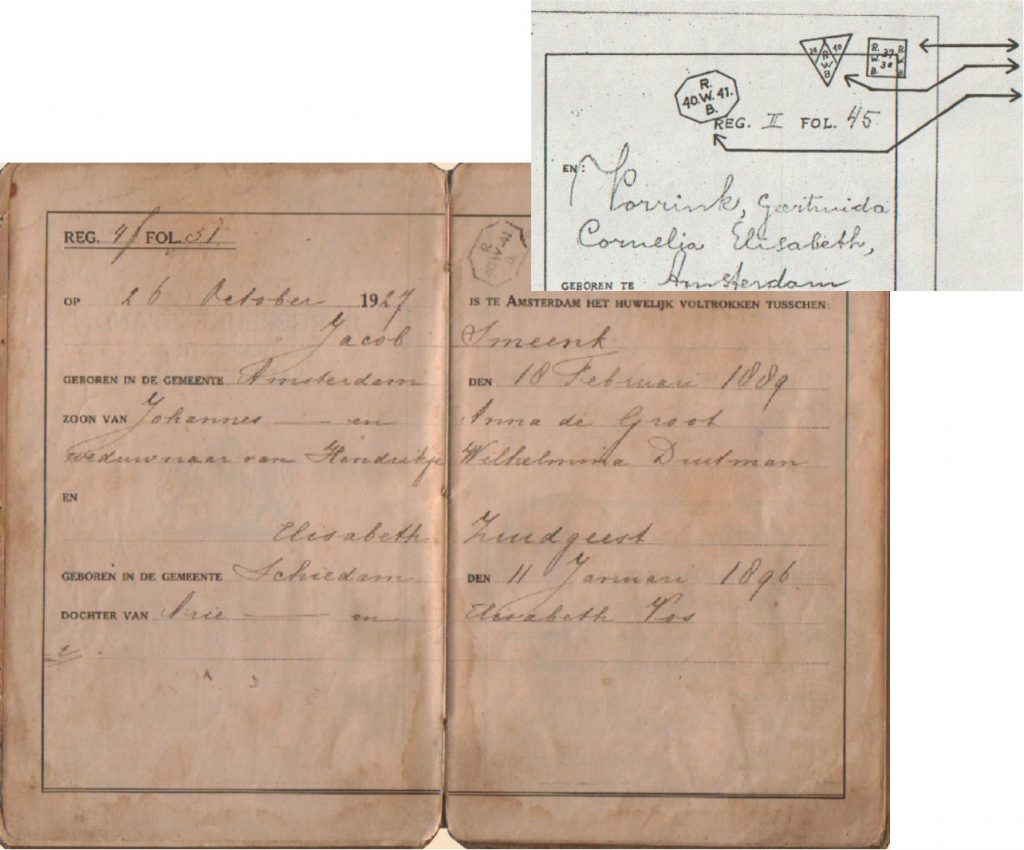 R. 37 R.
W. 38 W
B. B.
39 40
R
W
B
R.
40.W.41.
B.
REG. II FOL. 45
EN:
Vorrink, Geertruida
Cornelia Elisabeth,
GEBOREN TE Amsterdam
REG. 4 FOL. 31
R.
40.W.41.
B.
OP 26 October 1927 IS TE AMSTERDAM HET HUWELIJK VOLTROKKEN TUSSCHEN:
Jacob Smeenk
GEBOREN IN DE GEMEENTE Amsterdam DEN 18 Februari 1889
ZOON VAN Johannes en Anna de Groot
weduwnaar van Hendrikje Wilhelmina Duitman
EN
Elisabeth Zuidgeest
GEBOREN IN DE GEMEENTE Schiedam DEN 11 Januari 1896
DOCHTER VAN Arie en Elisabeth Vos